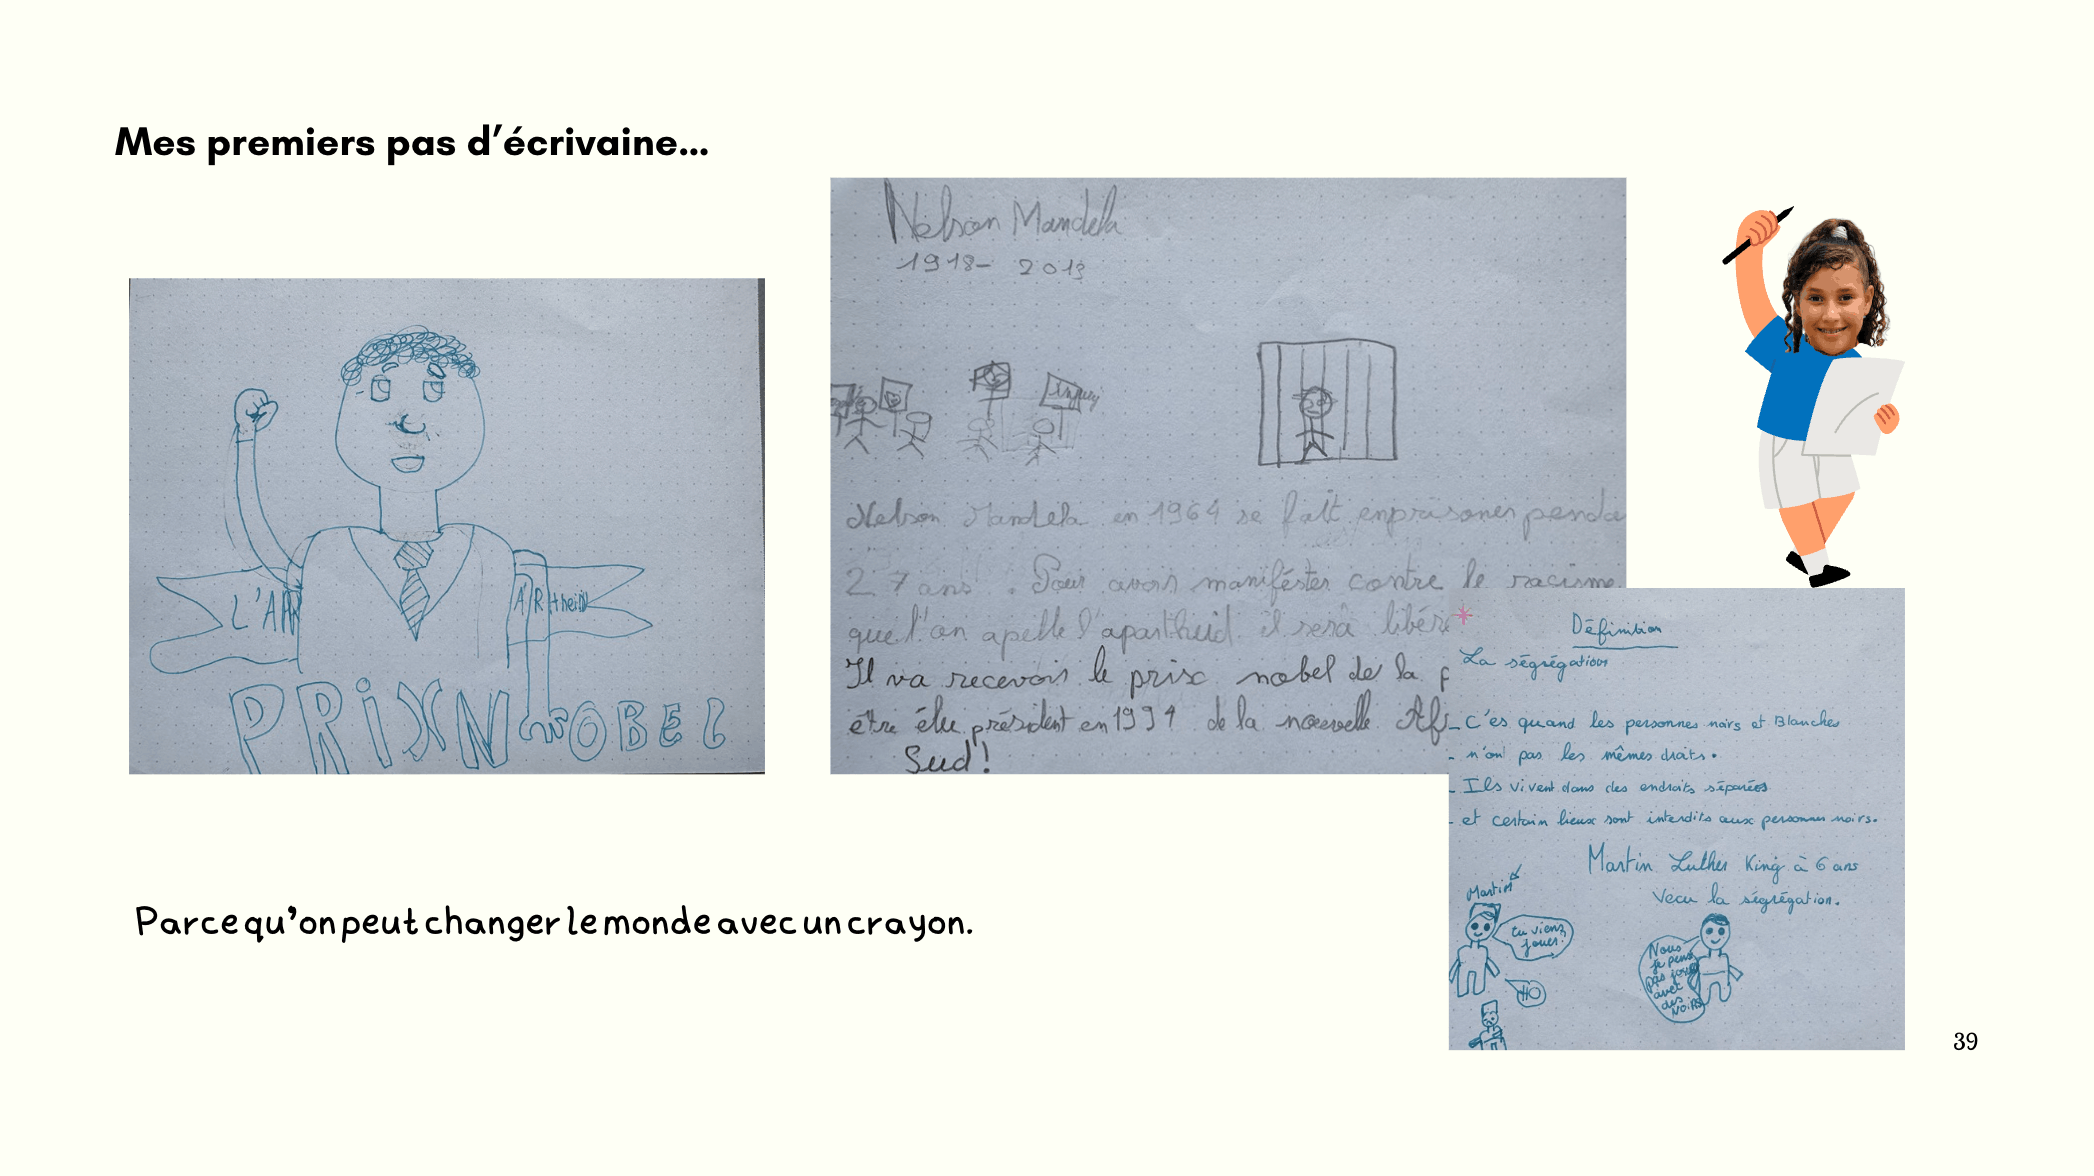 Mes premiers pas d’écrivaine...
L'AP
ARtheiD
PRiX NOBEL
Nelson Mandela
1918- 2013
Nelson Mandela en 1964 se fait enprisoner penda
27 ans. Pour avoir manifester contre le racisme
que l'on apelle l'apartheid il sera libére
Il va recevoir le prix nobel de la p
être élu président en 1994 de la nouvelle Afr
Sud!
Définition
La ségrégation
- C'es quand les personnes noirs et Blanches
- n'on pas les mêmes droits.
- Ils vivent dans des endroits séparées
- et certain lieux sont interdits aux personnes noirs.
Martin Luther King à 6 ans
Vecu la ségrégation.
Martin
tu viens
jouer?
Nous
je peux
pas jouer
avec
des
NOiRS
Parce qu’on peut changer le monde avec un crayon.
39